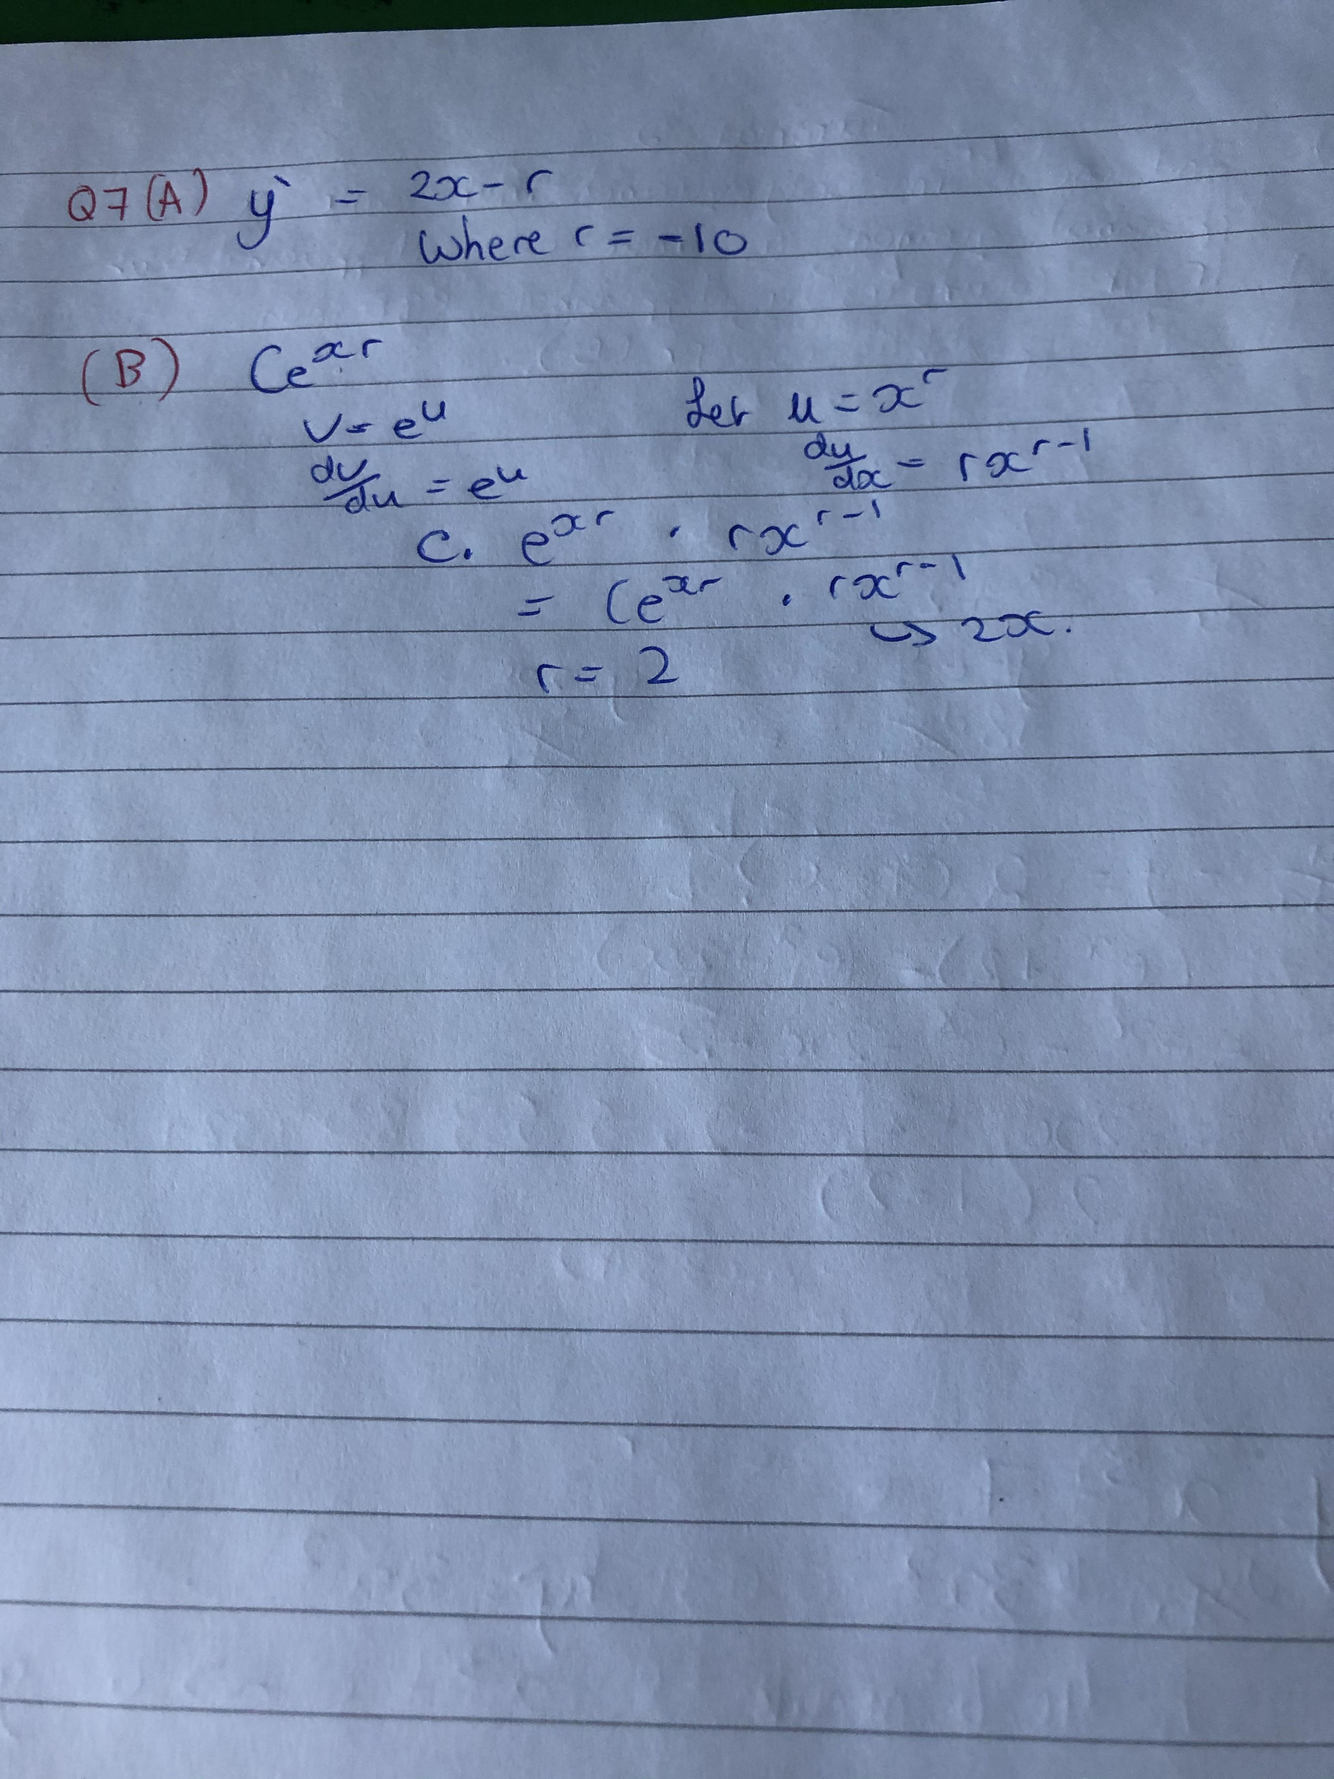 Q7(A) y` = 2x - r
where r = -10
(B) Ce^x^r
v = e^u Let u = x^r
dv/du = e^u du/dx = rx^r-1
C. e^x^r . rx^r-1
= Ce^x^r . rx^r-1
↳ 2x.
r = 2